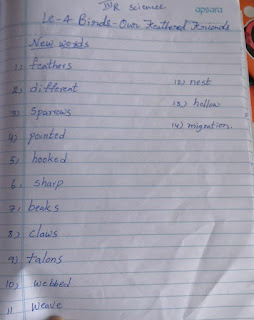 IVR Science
apsara
Le-4 Birds - Our Feathered Friends
New words
1) feathers
2) different
3) Sparrows
4) pointed
5) hooked
6. sharp
7) beaks
8) claws
9) talons
10) webbed
11. weave
12) nest
13) hollow
14) migration.